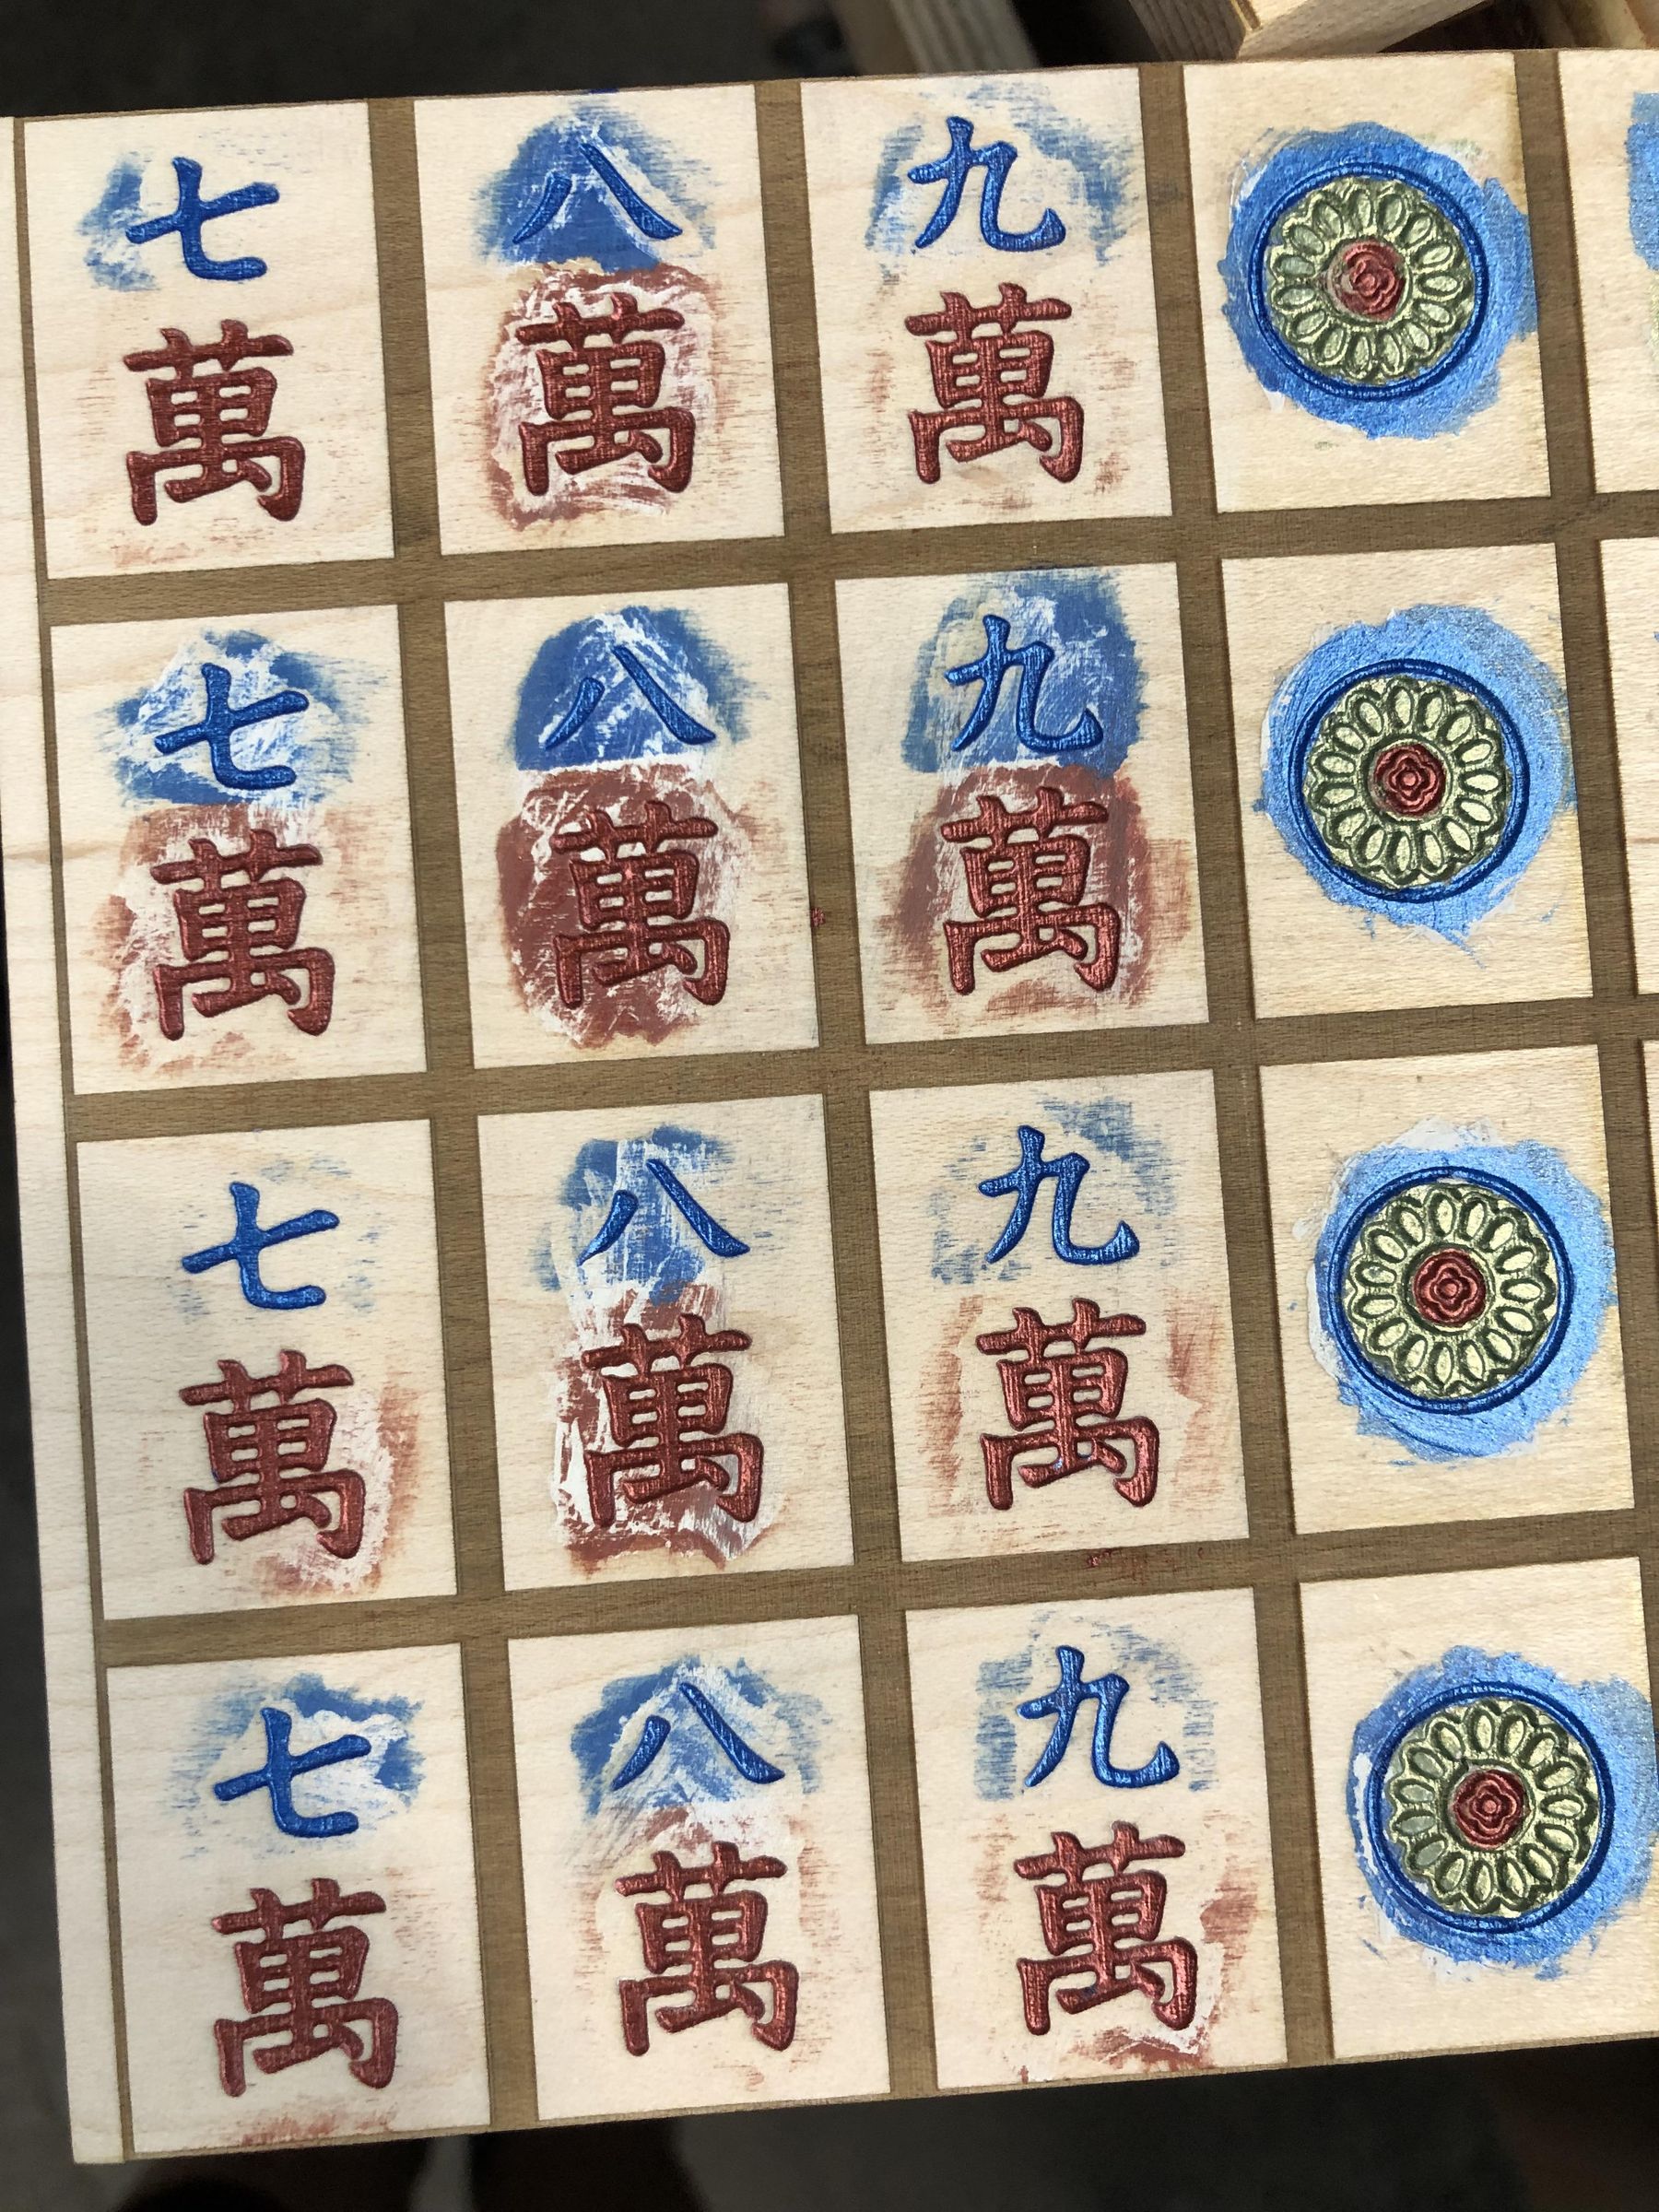 七 八 九
萬 萬 萬
七 八 九
萬 萬 萬
七 八 九
萬 萬 萬
七 八 九
萬 萬 萬